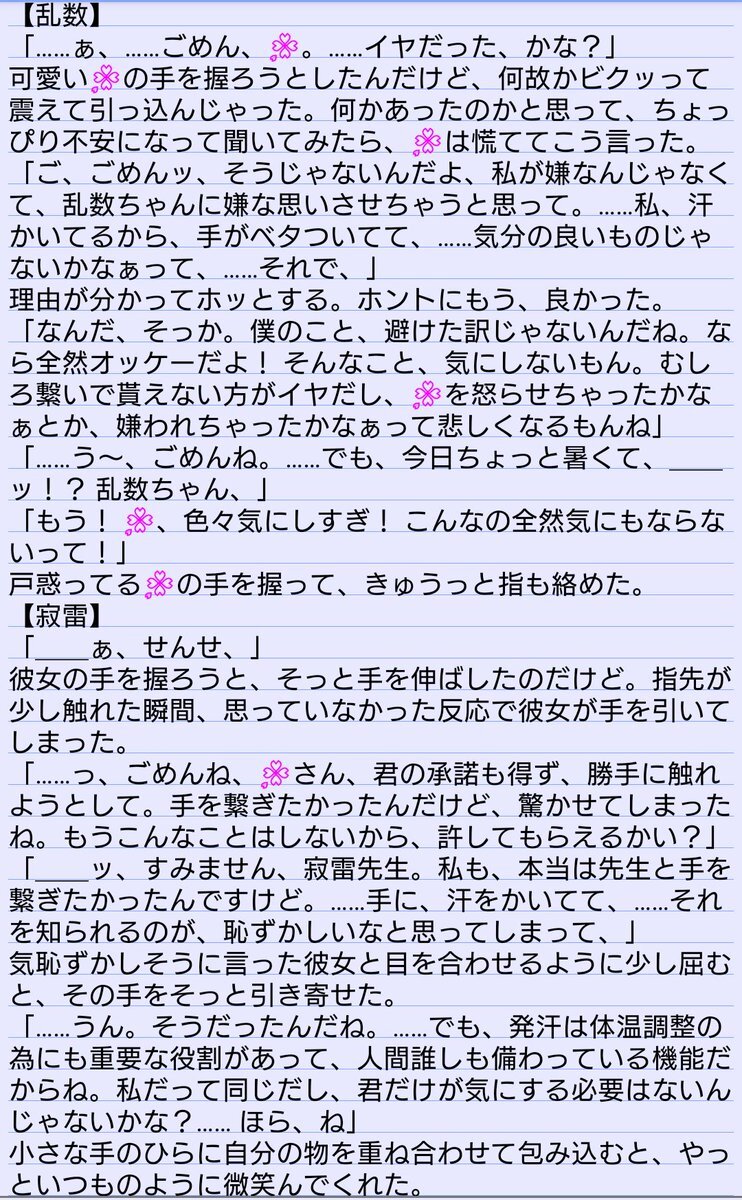 【乱数】
「……ぁ、……ごめん、🌸。……イヤだった、かな？」
可愛い🌸の手を握ろうとしたんだけど、何故かビクッって
震えて引っ込んじゃった。何かあったのかと思って、ちょっ
ぴり不安になって聞いてみたら、🌸は慌ててこう言った。
「ご、ごめんッ、そうじゃないんだよ、私が嫌なんじゃなく
て、乱数ちゃんに嫌な思いさせちゃうと思って。……私、汗
かいてるから、手がベタついてて、……気分の良いものじゃ
ないかなぁって、……それで、」
理由が分かってホッとする。ホントにもう、良かった。
「なんだ、そっか。僕のこと、避けた訳じゃないんだね。な
ら全然オッケーだよ！ そんなこと、気にしないもん。むし
ろ繋いで貰えない方がイヤだし、🌸を怒らせちゃったかな
ぁとか、嫌われちゃったかなぁって悲しくなるもんね」
「……う〜、ごめんね。……でも、今日ちょっと暑くて、____
ッ！？ 乱数ちゃん、」
「もう！ 🌸、色々気にしすぎ！ こんなの全然気にもならな
いって！」
戸惑ってる🌸の手を握って、きゅうっと指も絡めた。
【寂雷】
「____ぁ、せんせ、」
彼女の手を握ろうと、そっと手を伸ばしたのだけど。指先が
少し触れた瞬間、思っていなかった反応で彼女が手を引いて
しまった。
「……っ、ごめんね、🌸さん、君の承諾も得ず、勝手に触れ
ようとして。手を繋ぎたかったんだけど、驚かせてしまった
ね。もうこんなことはしないから、許してもらえるかい？」
「____ッ、すみません、寂雷先生。私も、本当は先生と手を
繋ぎたかったんですけど。……手に、汗をかいてて、……それ
を知られるのが、恥ずかしいなと思ってしまって、」
気恥ずかしそうに言った彼女と目を合わせるように少し屈む
と、その手をそっと引き寄せた。
「……うん。そうだったんだね。……でも、発汗は体温調整の
為にも重要な役割があって、人間誰しも備わっている機能だ
からね。私だって同じだし、君だけが気にする必要はないん
じゃないかな？…… ほら、ね」
小さな手のひらに自分の物を重ね合わせて包み込むと、やっ
といつものように微笑んでくれた。